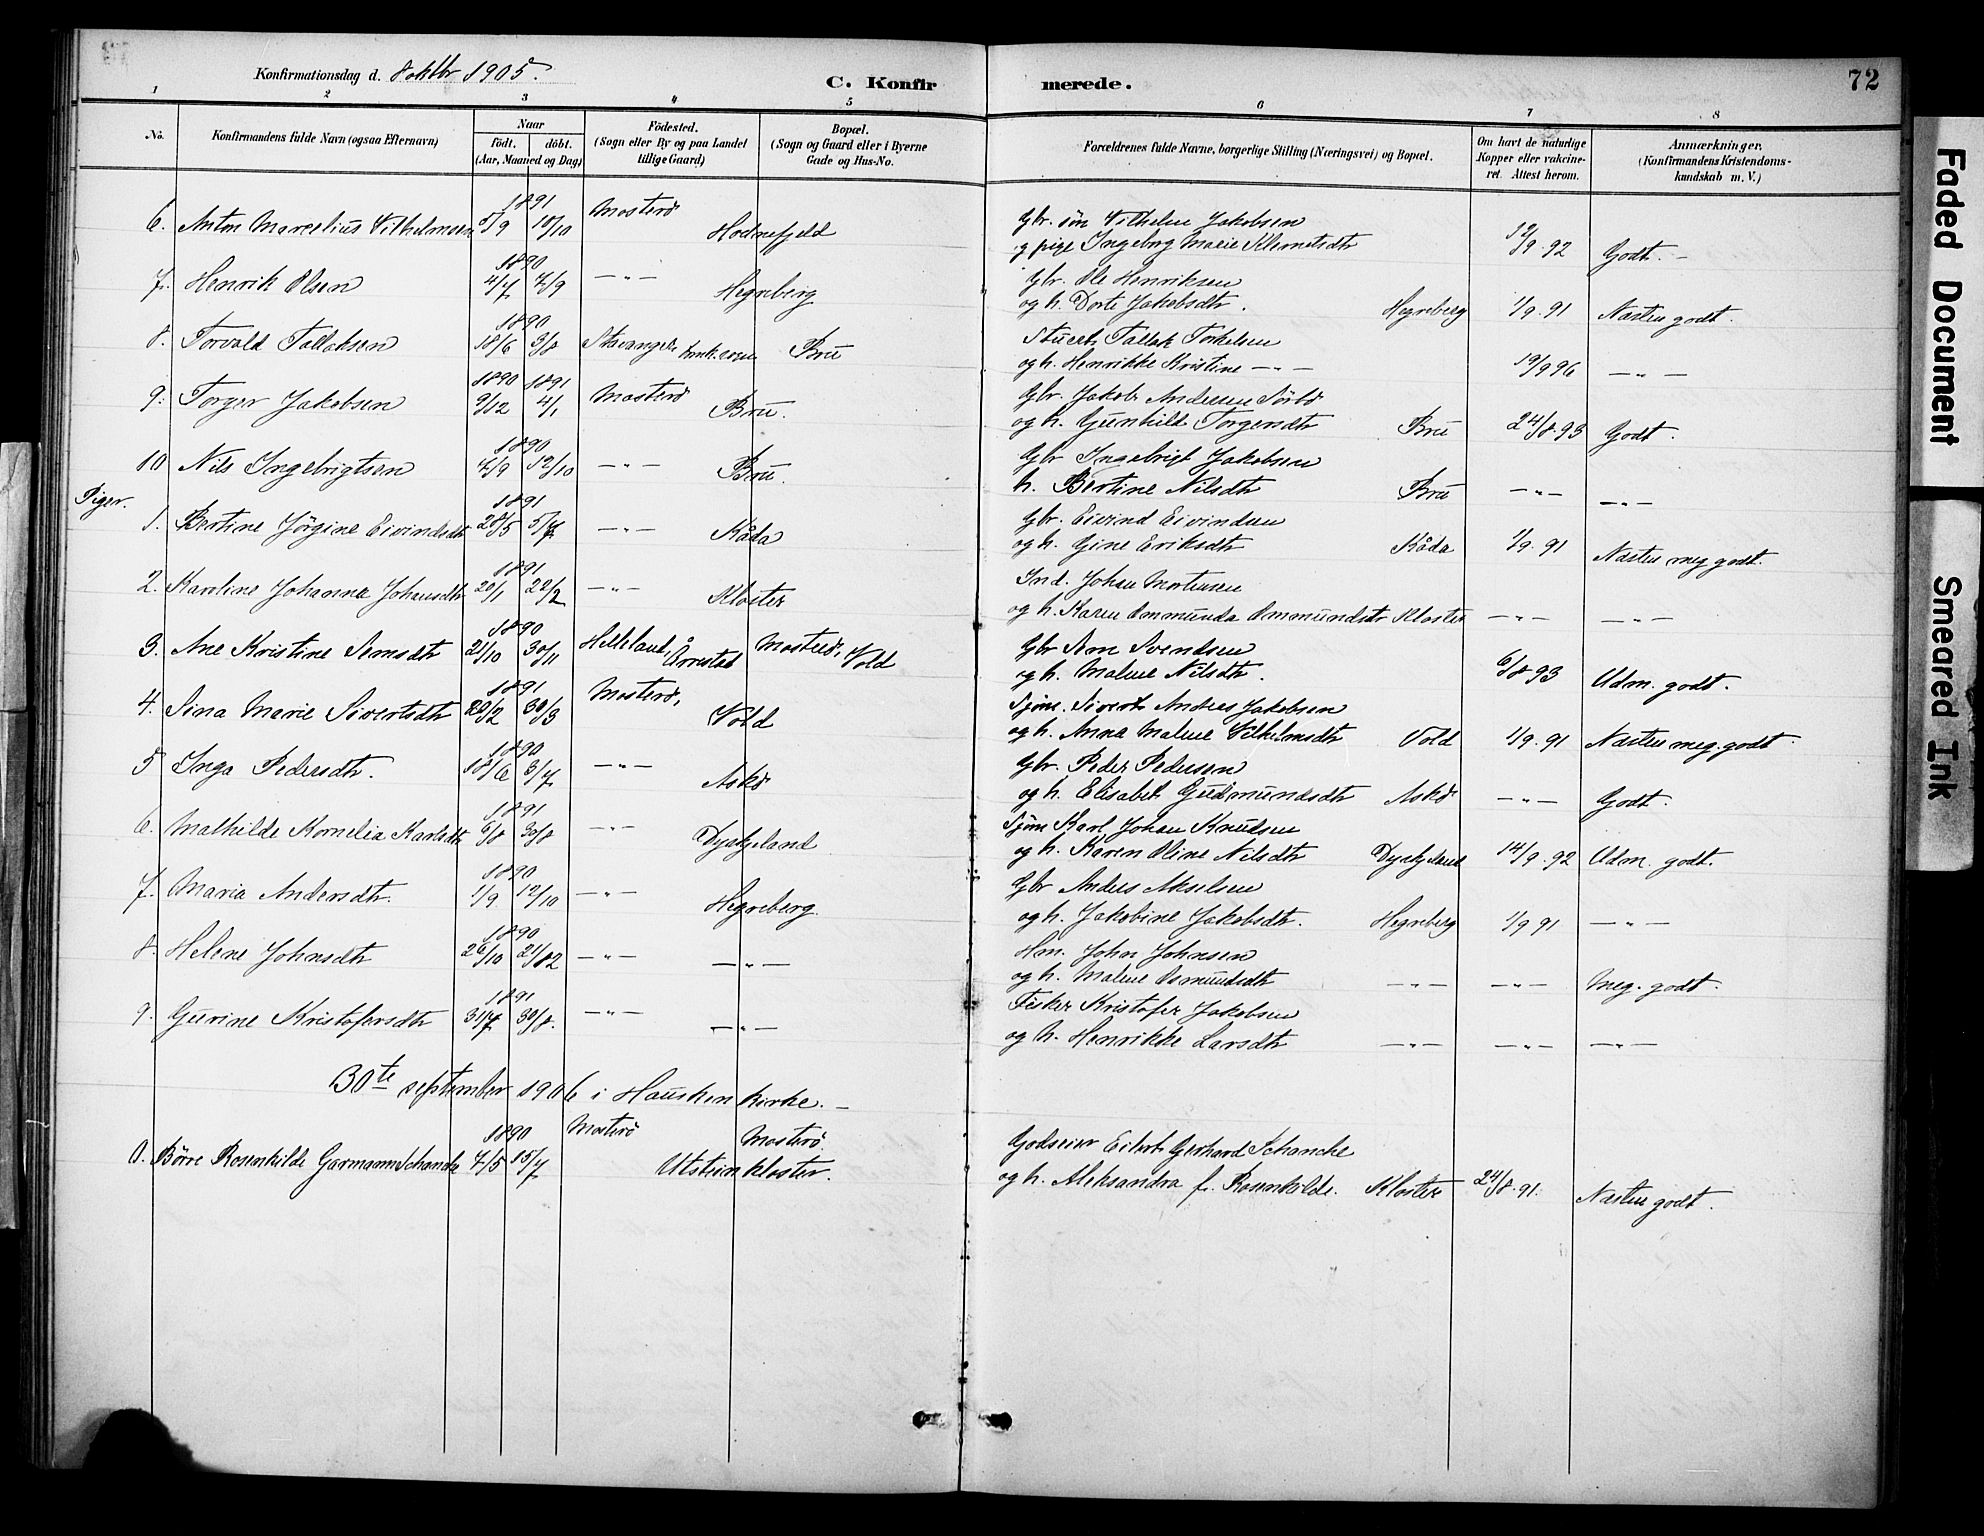 Konfirmationsdag d. 8 oktbr 1905. C. Konfirmerede. 72
1 2 3 4 5 6 7 8
No. Konfirmandens fulde Navn (ogsaa Efternavn) Naar födt. döbt. (Aar, Maaned og Dag) Födested. (Sogn eller By og paa Landet tillige Gaard) Bopæl. (Sogn og Gaard eller i Byerne Gade og Hus-No. Forældrenes fulde Navne, borgerlige Stilling (Næringsvei) og Bopæl. Om havt de naturlige Kopper eller vakcineret. Attest herom. Anmærkninger. (Konfirmandens Kristendomskundskab m. V.)
1891 Mosterö Gbr. søn Vilhelm Jakobsen
6. Anton Marcelius Vilhelmsen 5/9 18/10 Hodnefjeld og pige Ingeborg Marie Klemetsdtr 12/9 92 Godt.
1890 Gbr. Ole Henriksen
7. Henrik Olsen 4/7 7/9 —"— Hegreberg og h. Dorte Jakobsdtr. Hegreberg 1/9. 91 Næsten godt.
1890 Stuert Tallak Torkelsen
8. Torvald Tallaksen 18/6 3/8 Stavanger domk. sogn Bru og h. Henrikke Kristine —"— 19/9 96 —"—
1890 1891 Gbr. Jakob Andersen Sörbö
9. Torger Jakobsen 9/12 4/1 Mosterö Bru. og h. Gunhild Torgersdtr Bru 24/8. 93 Godt.
1890 Gbr Ingebrigt Jakobsen
10 Nils Ingebrigtsen 7/9 12/10 —"— Bru. h. Bertine Nilsdtr Bru —"— —"—
Piger.
1891 Gbr. Eivind Eivindsen
1. Bertine Jörgine Eivindsdtr 28/5 5/7 —"— Råda og h. Gine Eriksdtr Råda 1/9. 91 Næsten meg godt.
1891 Ind. Johan Mortensen
2. Karoline Johanna Johansdtr 20/1 22/2 —"— Kloster og h. Karen Ommunda Ommundsdtr Kloster —"— —"—
1890 Gbr Arn Svendsen
3. Ane Kristine Arnsdtr 21/10 30/11 Helleland, Örrestad Mosterö, Vold og h. Malene Nilsdtr. 6/8 93 Udm. godt.
1891 Mosterö, Sjöm. Sivert Andreas Jakobsen
4. Sina Marie Sivertsdtr 20/2 30/3 Vold og h. Anna Malene Vilhelmsdtr Vold 1/9. 91 Næsten meg. godt
1890 Gbr. Peder Pedersen
5 Inga Pedersdtr. 18/6 3/7 —"— Askö og h. Elisabet Gudmundsdtr Askö —"— Godt.
1891 Sjöm Karl Johan Knudsen
6. Mathilde Kornelia Karlsdtr 6/8 30/8 —"— Dysjeland og h. Karen Oline Nilsdtr Dysjeland 14/9. 92 Udm. godt.
1890 Gbr Anders Akselsen
7. Maria Andersdtr. 1/9 12/10 —"— Hegreberg. og h. Jakobine Jakobsdtr. Hegreberg 1/9 91 —"—
1890 Hm. John Johnsen
8. Helene Johnsdtr 26/10 21/12 —"— —"— og h. Malene Osmundsdtr —"— —"— Meg. godt.
1891 Fisker Kristofer Jakobsen
9. Gurine Kristofersdtr 31/7 30/8. —"— —"— og h. Henrikke Larsdtr —"— —"— —"—
30te september 1906 i Hausken kirke. —
1890 Mosterö Mosterö. Godseier Eilert Gerhard Schancke
0. Börre Rosenkilde Garmann Schancke 7/5 15/7 Utstein kloster. og h. Aleksandra f. Rosenkilde. Kloster 24/8. 91. Næsten godt.
Faded Document
Smeared Ink